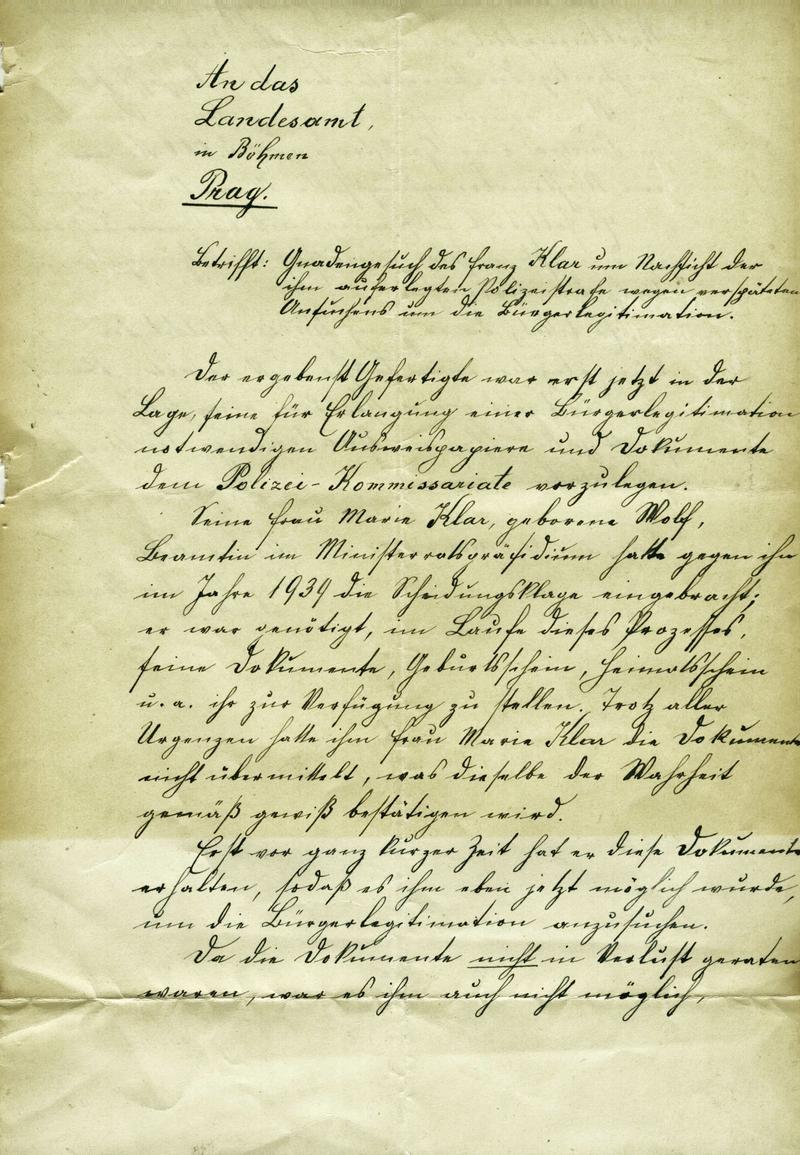 An das
Landesamt,
in Böhmen
Prag.
Betrifft: Gnadengesuch des Franz Klar um Nachsicht der
ihm auferlegten Polizeistrafe wegen verspäteten
Ansuchens um die Bürgerlegitimation.
Der ergebenst Gefertigte war erst jetzt in der
Lage, seine für Erlangung einer Bürgerlegitimation
notwendigen Ausweispapiere und Dokumente
dem Polizei-Kommissariate vorzulegen.
Seine Frau Marie Klar, geborene Wolf,
Beamtin im Ministerratspräsidium hatte gegen ihn
im Jahre 1939 die Scheidungsklage eingebracht;
er war genötigt, im Laufe dieses Prozesses,
seine Dokumente, Geburtsschein, Heimatsschein
u. a. ihr zur Verfügung zu stellen. Trotz aller
Urgenzen hatte ihm Frau Marie Klar die Dokumente
nicht übermittelt, was dieselbe der Wahrheit
gemäß gewiß bestätigen wird.
Erst vor ganz kurzer Zeit hat er diese Dokumente
erhalten, sodaß es ihm eben jetzt möglich wurde,
um die Bürgerlegitimation anzusuchen.
Da die Dokumente nicht in Verlust geraten
waren, war es ihm auch nicht möglich,